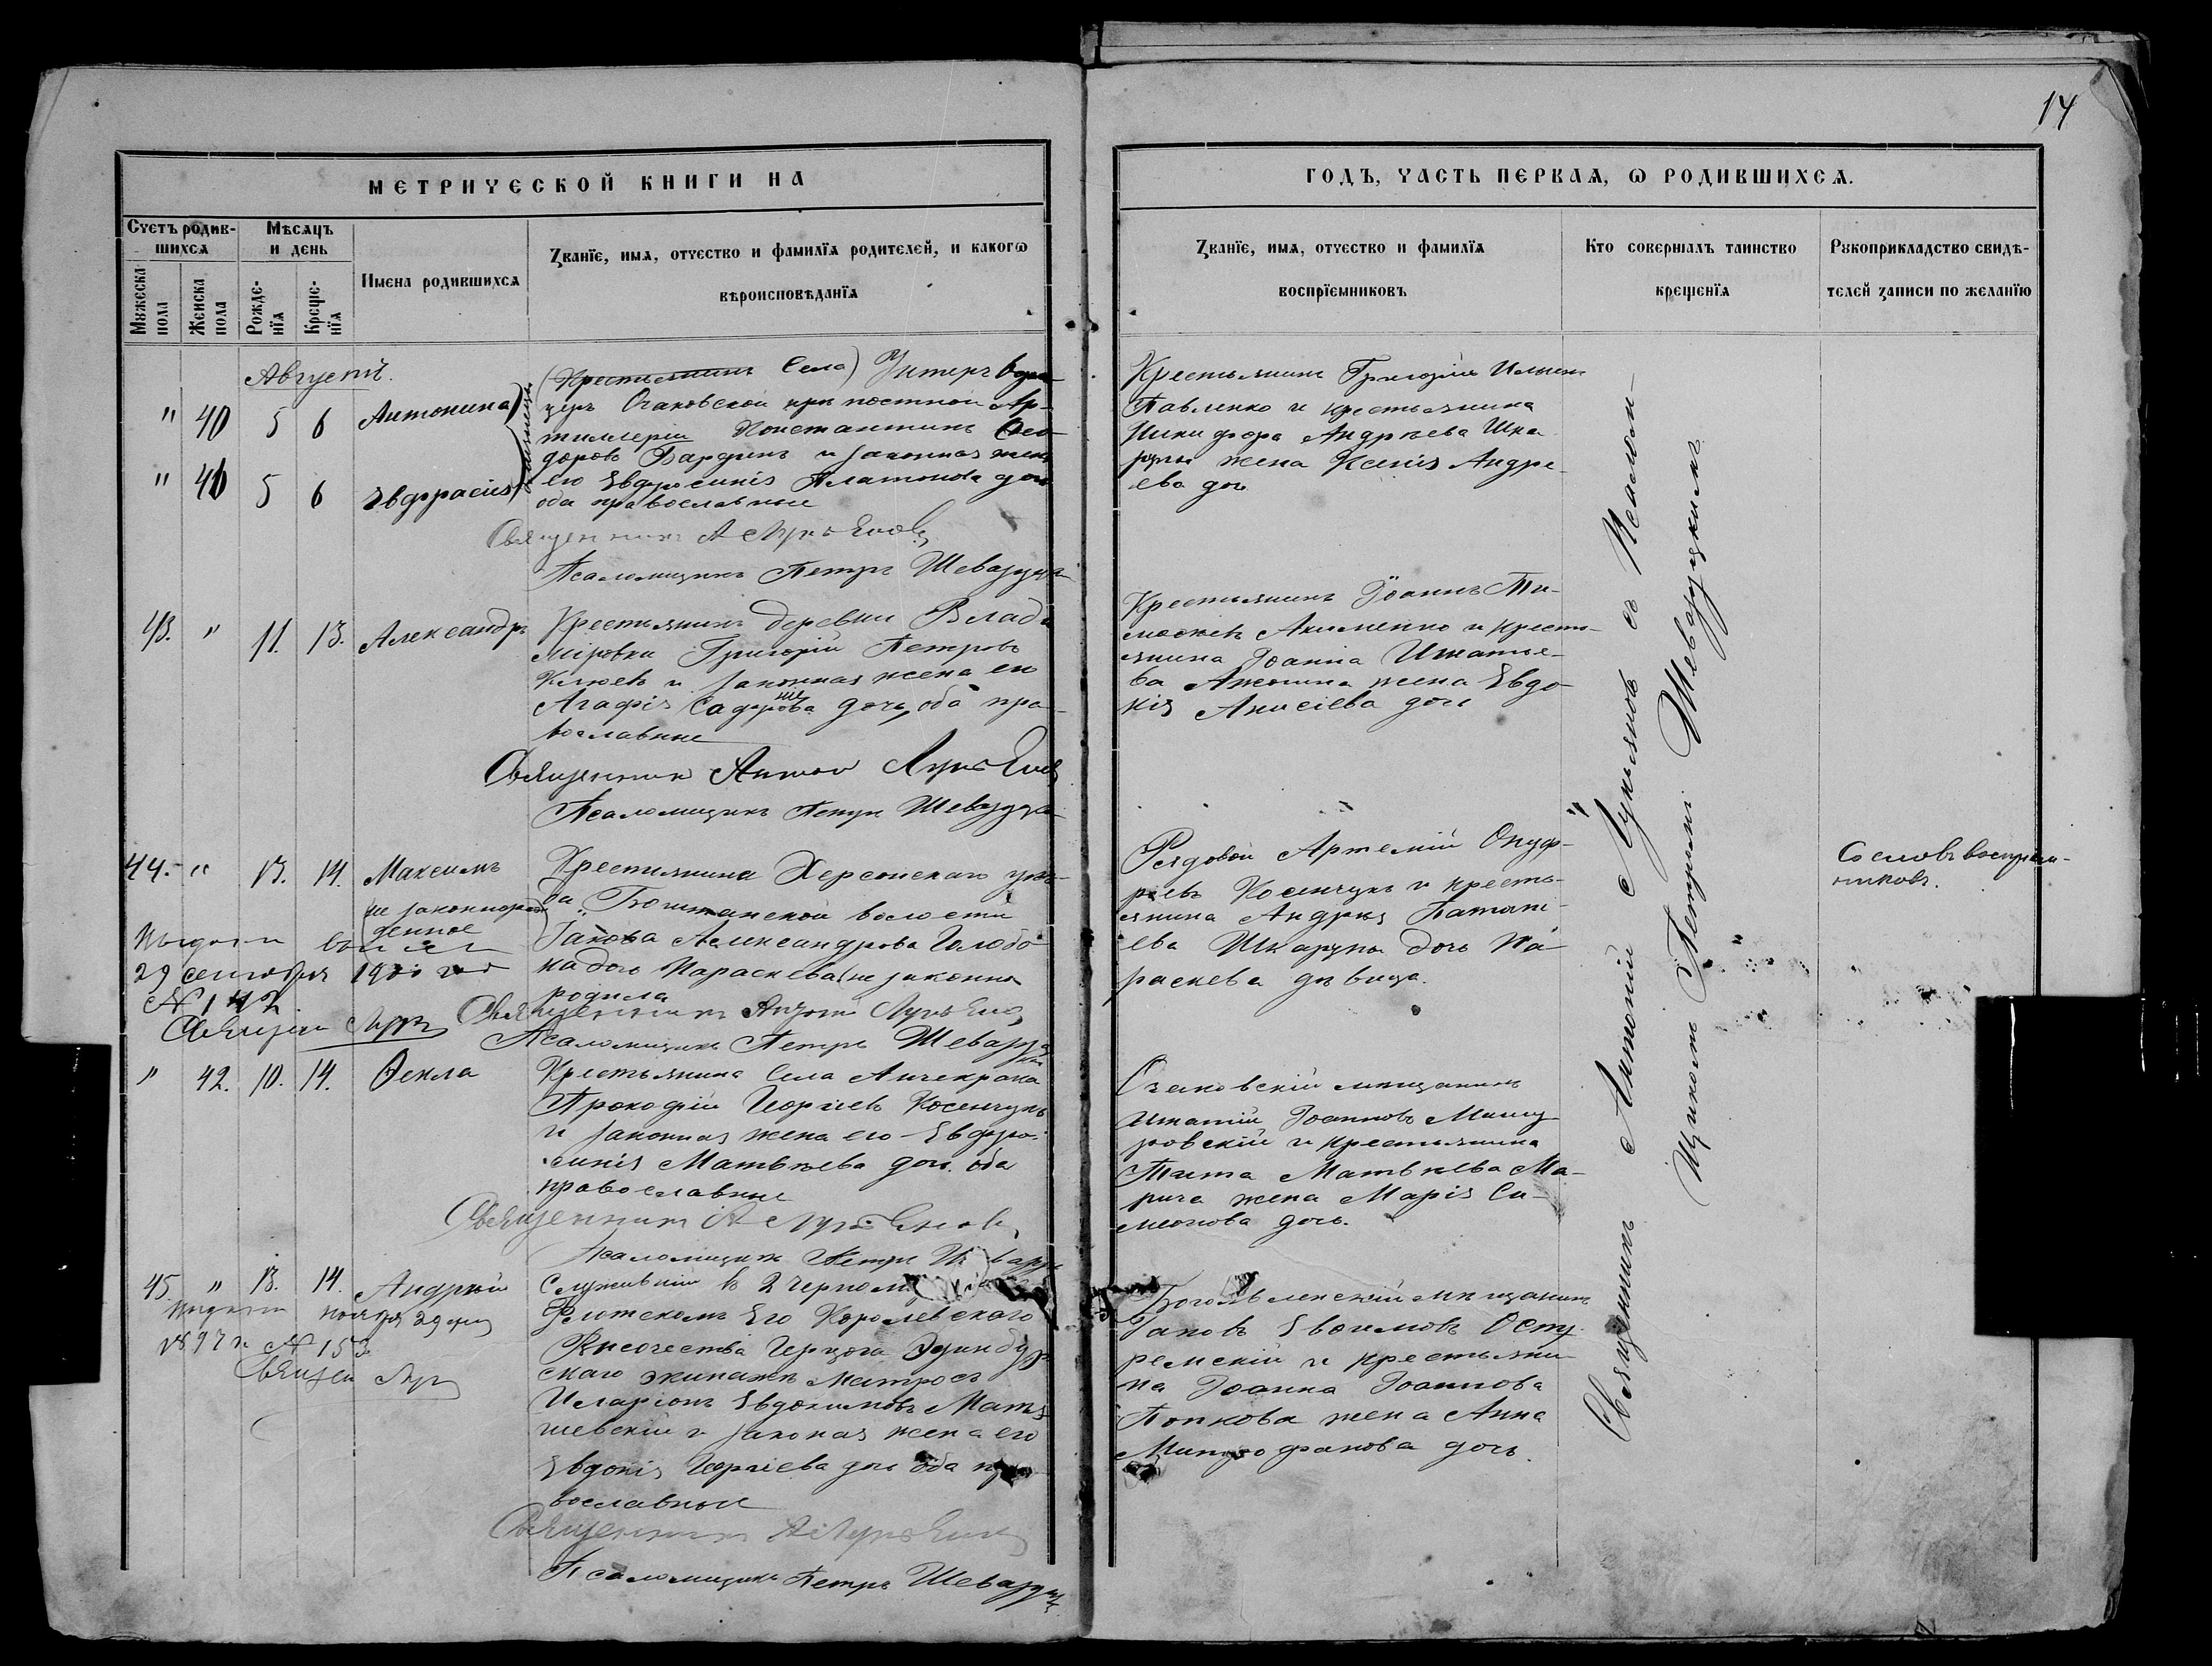 14
МЕТРИЧЕСКОЙ КНИГИ НА
ГОДЪ, ЧАСТЬ ПЕРВАЯ, Ѡ РОДИВШИХСЯ.
Счетъ родив-
шихся
Мѣсяцъ
и день
Мужеска
пола
Женска
пола
Рожде-
нїя
Креще-
нїя
Имена родившихся
Званїе, имя, отчество и фамилїя родителей, и какогѡ
вѣроисповѣданїя
Званїе, имя, отчество и фамилїя
воспрїемниковъ
Кто совершалъ таинство
крещенїя
Рукоприкладство свидѣ-
телей записи по желанїю
Августъ.
" 40 5 6 Антонина
" 41 5 6 Евфрасія
близнецы
(Крестьянинъ Села) Унтеръ Офи-
церъ Очаковской крѣпостной Ар-
тиллеріи Константинъ Ѳео-
доровъ Бардинъ и законная жена
его Евфросинія Платонова дочь
оба православные
Священникъ А Лукьяновъ
Псаломщикъ Петръ Шевазуцкі
Крестьянинъ Григорій Ильинъ
Павленко и крестьянина
Никифора Андреева Шка-
рупы жена Ксенія Андре-
ева дочь
43. " 11. 13. Александръ
Крестьянинъ деревни Влади
міровки Григорій Петровъ
Клюевъ и законная жена его
Агафія дочь, оба пра-
вославные
Священникъ Антон Лукьянов
Псаломщикъ Петръ Шевазуцкі
Крестьянинъ Іоаннъ Ти-
моѳеевъ Акименко и крестья-
янина Іоанна Игнатье-
ва жена Евдо-
кія Анисіева дочь
44. " 13. 14. Максимъ
(не законнорож-
денное
Крестьянина Херсонскаго уѣз-
да, Боштанской волости
Іакова Александрова Голобо-
ка дочь Параскева (не законно
родила
Священникъ Антон Лукьянов
Псаломщикъ Петръ Шевазуцкі
29 сентября 1900 год
N 142
Священ Лук
Рядовой Артемій Онуф-
ріевъ Косенчукъ и кресть-
янина Андрея
ева Шкарупы дочь Па-
раскева дѣвица.
Со словъ воспріем-
никовъ.
" 42. 10. 14. Ѳекла
Крестьянина Села Анчекрака
Прокофій Георгіевъ Косенчукъ
и законная жена его Евфро-
синія Матвѣева дочь. оба
православные
Священникъ А Лукьянов
Псаломщикъ Петръ
Очаковскій мѣщанинъ
Игнатій Іоанновъ
ровскій и крестьянина
Тита Матвѣева Ма-
рича жена Марія Си-
меонова дочь.
45. " 13. 14. Андрей
ноября 29 дня
1897 г. N 153
Священ Лук
Служившій въ 2 Черном
Флотскомъ Его Королевскаго
Высочества Герцога Эдинбур
скаго экипажѣ Матросъ
Иларіонъ Евдокимовъ Матя
шевскій и законая жена его
Евдокія Георгіева дочь оба пра
вославные
Священникъ А Лукьянов
Псаломщикъ Петръ Шевазуцкі
Богоявленскій мѣщанинъ
Іаковъ Евѳимовъ
ремскій и крестьяни-
на Іоанна Іоаннова
Попкова жена Анна
Митрофанова дочь.
Священникъ Антоній Лукьяновъ съ Псалом-
щикомъ Петромъ Шевазуцкимъ